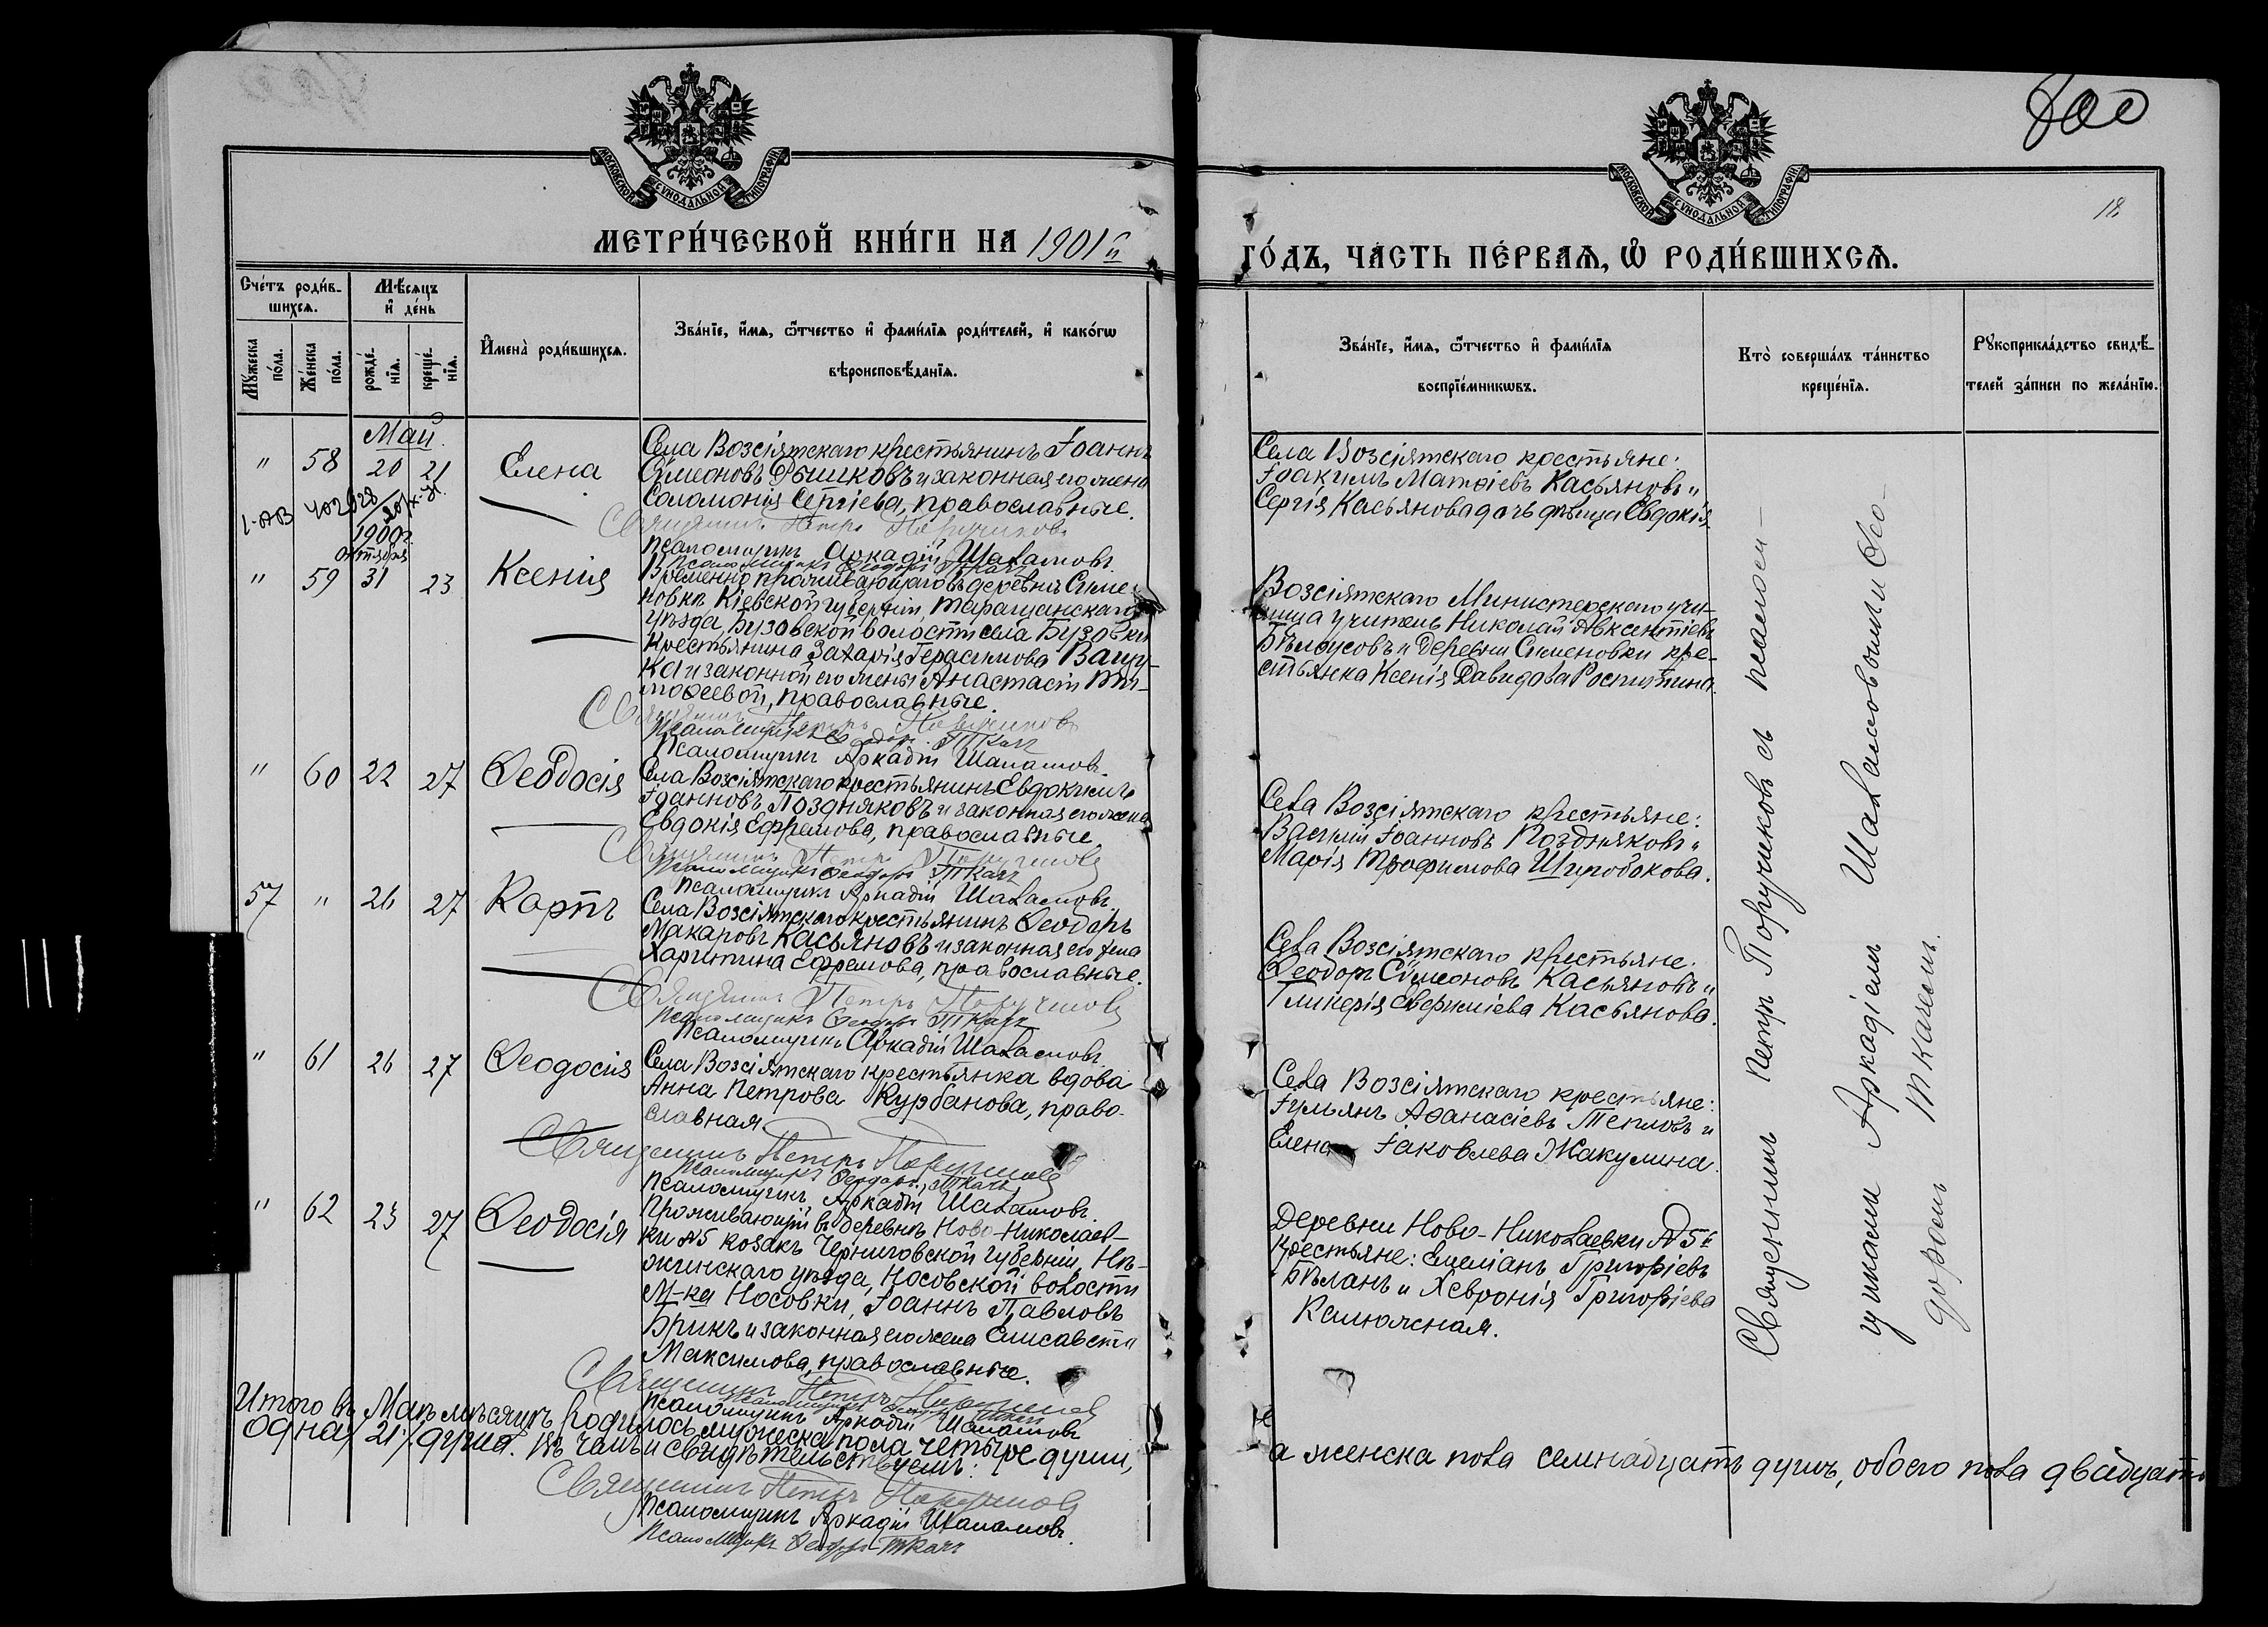 800
18
МОСКОВСКОЙ СѴНОДАЛЬНОЙ ТИПОГРАФІИ
МОСКОВСКОЙ СѴНОДАЛЬНОЙ ТИПОГРАФІИ
МЕТРИ́ЧЕСКОЙ КНИ́ГИ НА 1901й
ГО́ДЪ, ЧА́СТЬ ПЕ́РВАѦ, Ѡ҆ РОДИ́ВШИХСѦ.
Сче́тъ роди́в-
шихсѧ.
Мѣ́сѧцъ
и҆ де́нь
Мꙋ́жеска
по́ла.
Же́нска
по́ла.
рожде́-
нїѧ.
креще́-
нїѧ.
И҆мена̀ роди́вшихсѧ.
Зва́нїе, и҆́мѧ, ѻ҆́тчество и҆ фами́лїѧ роди́телей, и҆ како́гѡ
вѣроисповѣ́данїѧ.
Зва́нїе, и҆́мѧ, ѻ҆́тчество и҆ фами́лїѧ
воспрїе́мникѡвъ.
Кто̀ соверша́лъ та́инство
креще́нїѧ.
Рꙋкоприкла́дство свидѣ́-
телей за́писи по жела́нїю.
Май.
" 58 20 21 Елена
Села Возсіятскаго крестьянинъ Іоаннъ
Сѵмеоновъ Рышковъ и законная его жена
Соломонія Сергіева, православные.
Священникъ Петръ Поручиковъ
Псаломщикъ Аркадій Шаламовъ
Псаломщикъ Ѳеодоръ Ткачъ
Села Возсіятскаго крестьяне:
Іоакимъ Матѳіевъ Касьяновъ и
Сергія Касьянова дочь дѣвица Евдокія.
1-АВ 402928
1900г.
октября
" 59 31 23 Ксенія
Временно проживающаго въ деревнѣ Симе-
новкѣ Кіевской губерніи, Таращанскаго
уѣзда, Бузовской волости села Бузовки
крестьянина Захарія Герасимова Ващу-
ка и законной его жены Анастасіи Ти-
моѳеевой, православные.
Священникъ Петръ Поручиковъ
Псаломщикъ Ѳеодоръ Ткачъ
Псаломщикъ Аркадій Шаламовъ
Возсіятскаго Министерскаго учи-
лища учитель Николай Авксентіевъ
Бѣлоусовъ и деревни Сименовки кре-
стьянка Ксенія Давидова Роспутина.
" 60 22 27 Ѳеодосія
Села Возсіятскаго крестьянинъ Евдокимъ
Іоанновъ Поздняковъ и законная его жена
Евдокія Ефремова, православные
Священникъ Петръ Поручиковъ
Псаломщикъ Ѳеодоръ Ткачъ
Псаломщикъ Аркадій Шаламовъ.
Села Возсіятскаго крестьяне:
Василій Іоанновъ Поздняковъ и
Марія Трофимова Широбокова.
57 " 26 27 Карпъ
Села Возсіятскаго крестьянинъ Ѳеодоръ
Макаровъ Касьяновъ и законная его жена
Харитина Ефремова, православные.
Священникъ Петръ Поручиковъ
Псаломщикъ Ѳеодоръ Ткачъ
Псаломщикъ Аркадій Шаламовъ.
Села Возсіятскаго крестьяне:
Ѳеодоръ Сѵмеоновъ Касьяновъ и
Гликерія Евфиміева Касьянова.
" 61 26 27 Ѳеодосія
Села Возсіятскаго крестьянка вдова
Анна Петрова Курбанова, право-
славная.
Священникъ Петръ Поручиковъ
Псаломщикъ Ѳеодоръ Ткачъ
Псаломщикъ Аркадій Шаламовъ.
Села Возсіятскаго крестьяне:
Іульянъ Аѳанасіевъ Тепловъ и
Елена Іаковлева Жакулина.
" 62 23 27 Ѳеодосія
Проживающій въ деревнѣ Ново-Николаев-
ки №5 козакъ Черниговской губерніи, Нѣ-
жинскаго уѣзда, Носовской волости
М-ка Носовки, Іоаннъ Павловъ
Брикъ и законная его жена Елисавета
Максимова, православные.
Священникъ Петръ Поручиковъ
Псаломщикъ Ѳеодоръ Ткачъ
Псаломщикъ Аркадій Шаламовъ
Деревни Ново-Николаевки №5й
крестьяне: Емеліанъ Григоріевъ
Бѣланъ и Хевронія Григоріева
Священникъ Петръ Поручиковъ съ псалом-
щиками Аркадіемъ Шаламовымъ и Ѳео-
доромъ Ткачемъ.
Итого въ Маѣ мѣсяцѣ родилось мужеска пола четыре души,
а женска пола семнадцать душъ, обоего пола двадцать
одна /21/ душа. Въ чемъ и свидѣтельствуемъ:
Священникъ Петръ Поручиковъ
Псаломщикъ Аркадій Шаламовъ.
Псаломщикъ Ѳеодоръ Ткачъ